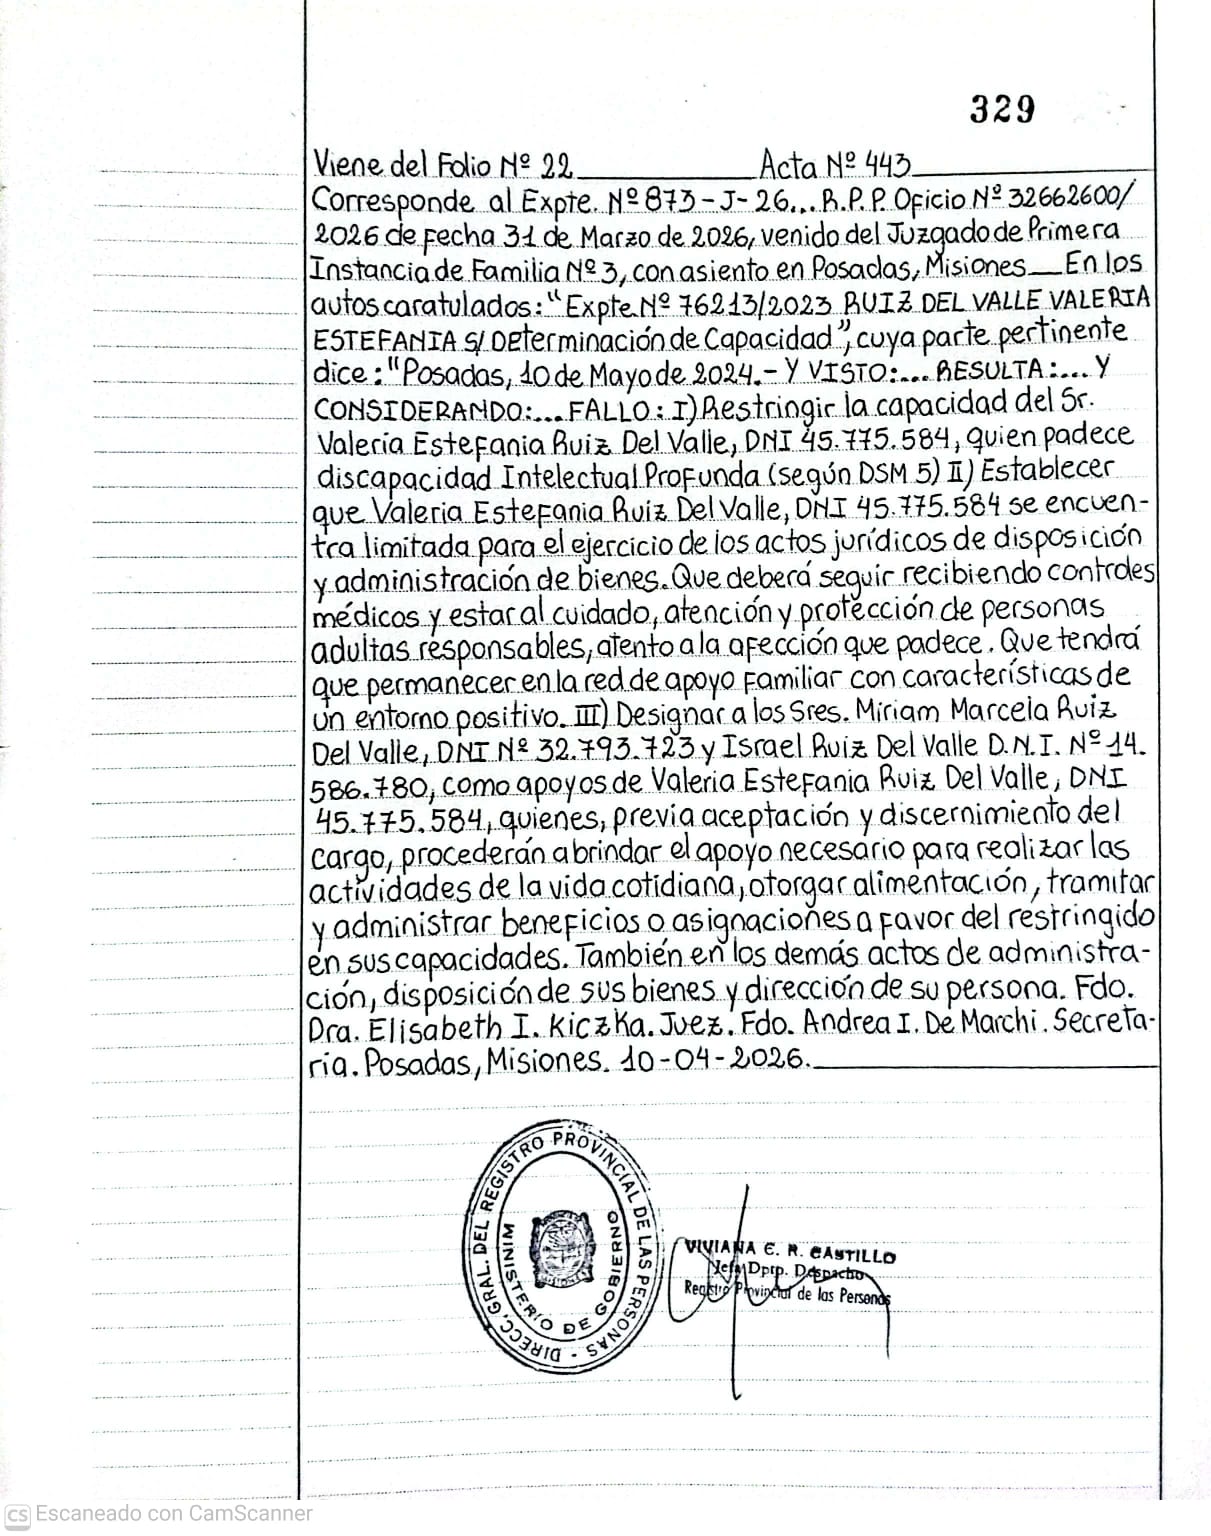 329
Viene del Folio Nº 22 Acta Nº 443
Corresponde al Expte. Nº 873-J-26... R.P.P. Oficio Nº 32662600/
2026 de fecha 31 de Marzo de 2026, venido del Juzgado de Primera
Instancia de Familia Nº 3, con asiento en Posadas, Misiones__ En los
autos caratulados: "Expte Nº 76213/2023 RUIZ DEL VALLE VALERIA
ESTEFANIA S/ Determinación de Capacidad", cuya parte pertinente
dice: "Posadas, 10 de Mayo de 2024.- Y VISTO:... RESULTA:... Y
CONSIDERANDO:... FALLO: I) Restringir la capacidad del Sr.
Valeria Estefania Ruiz Del Valle, DNI 45.775.584, quien padece
discapacidad Intelectual Profunda (según DSM 5) II) Establecer
que Valeria Estefania Ruiz Del Valle, DNI 45.775.584 se encuen-
tra limitada para el ejercicio de los actos jurídicos de disposición
y administración de bienes. Que deberá seguir recibiendo controles
médicos y estar al cuidado, atención y protección de personas
adultas responsables, atento a la afección que padece. Que tendrá
que permanecer en la red de apoyo familiar con características de
un entorno positivo. III) Designar a los Sres. Miriam Marcela Ruiz
Del Valle, DNI Nº 32.793.723 y Israel Ruiz Del Valle D.N.I. Nº 14.
586.780, como apoyos de Valeria Estefania Ruiz Del Valle, DNI
45.775.584, quienes, previa aceptación y discernimiento del
cargo, procederán a brindar el apoyo necesario para realizar las
actividades de la vida cotidiana, otorgar alimentación, tramitar
y administrar beneficios o asignaciones a favor del restringido
en sus capacidades. También en los demás actos de administra-
ción, disposición de sus bienes y dirección de su persona. Fdo.
Dra. Elisabeth I. Kiczka. Juez. Fdo. Andrea I. De Marchi. Secreta-
ria. Posadas, Misiones. 10-04-2026.
DIRECC. GRAL. DEL REGISTRO PROVINCIAL DE LAS PERSONAS -
MINISTERIO DE GOBIERNO
VIVIANA E. R. CASTILLO
Jefa Dpto. Despacho
Registro Provincial de las Personas
CS Escaneado con CamScanner